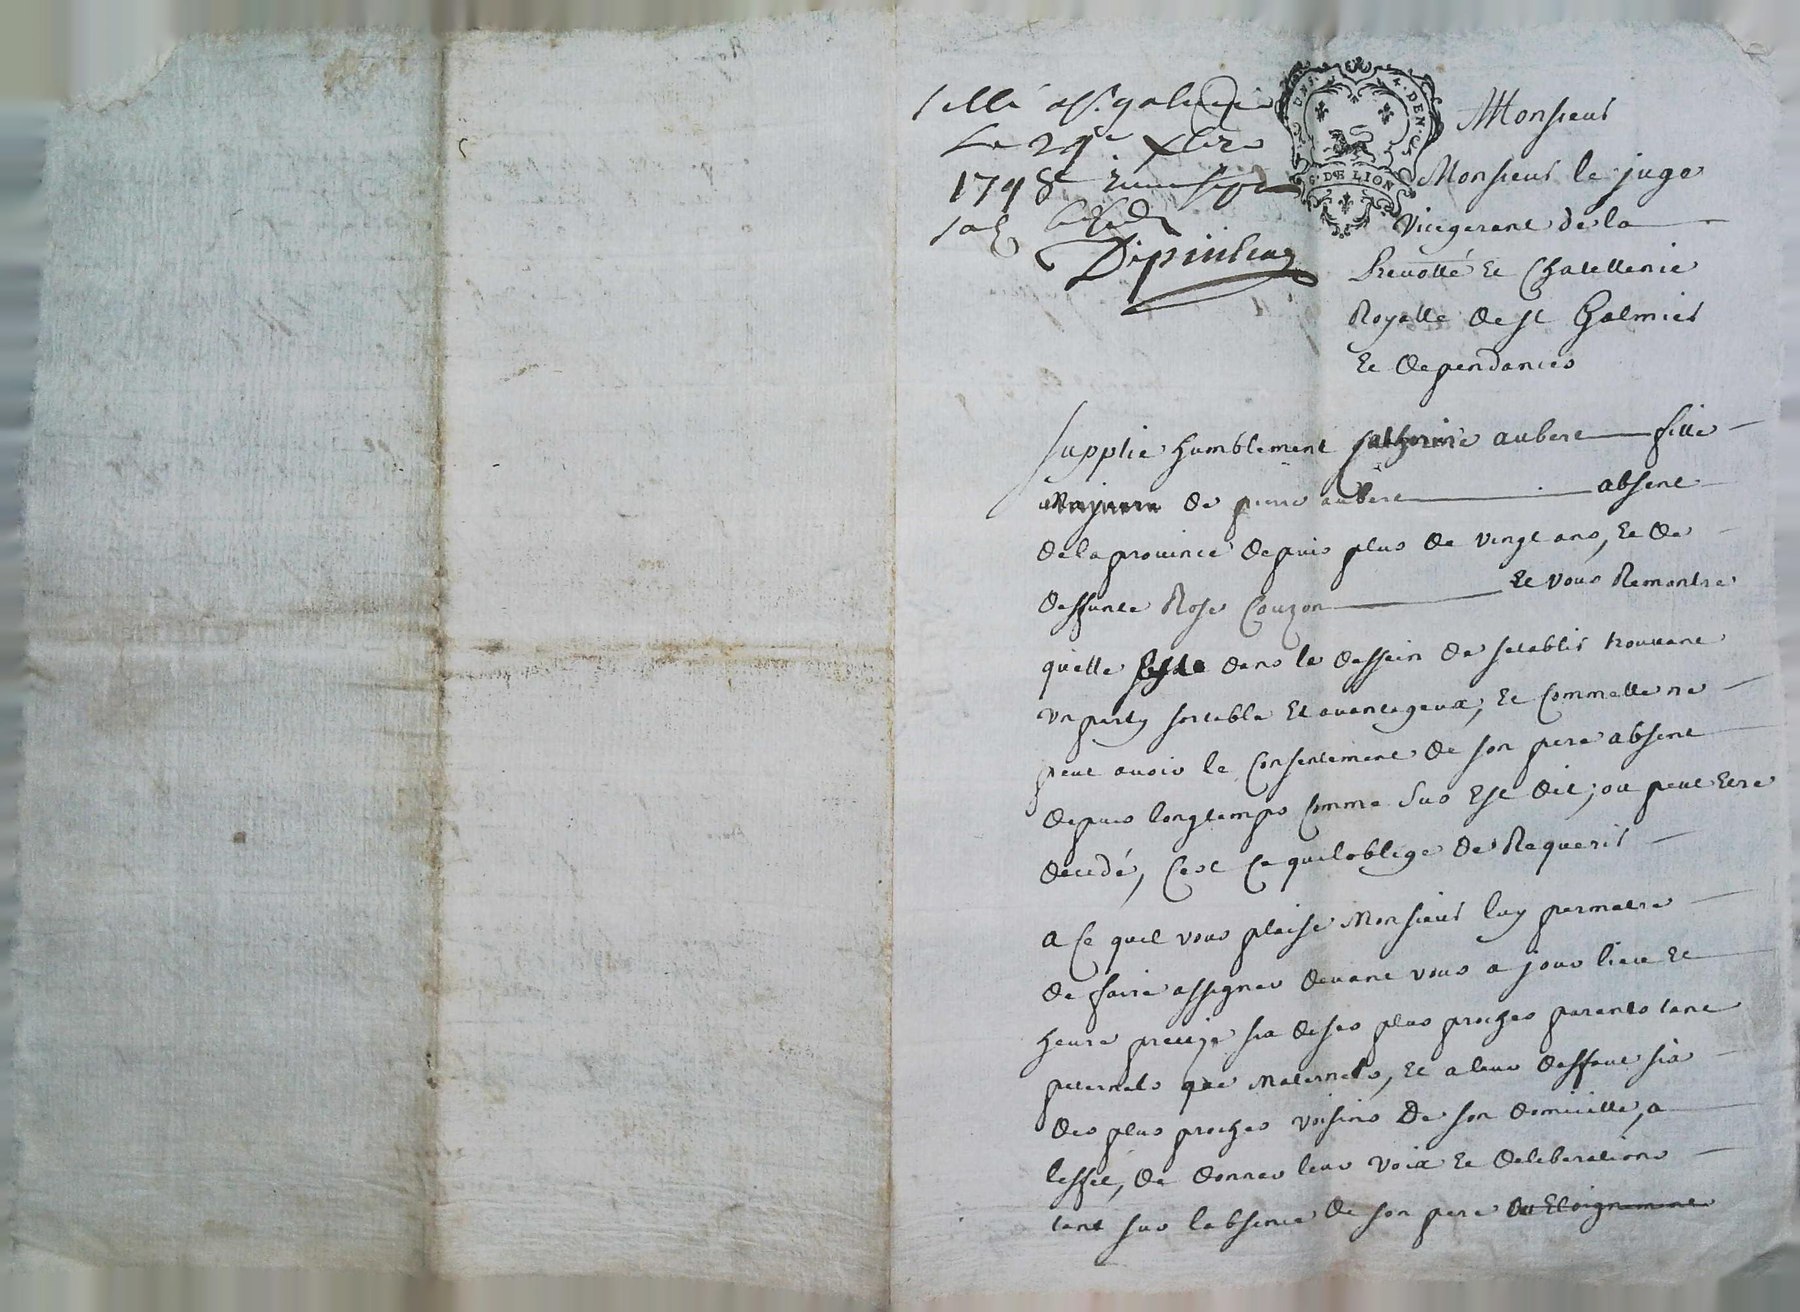 scellé a st galmier
Le 29e xbre
1748
Depinhac
G. DE LION
Monsieur
Monsieur le juge
Vicegerent de la
Prevotté Et Chatellenie
Royalle de st Galmier
Et dependances
Supplie humblement Catherine aubert fille
Majeure de pierre aubert absent
de la province depuis plus de vingt ans, Et de
deffunte Rose Couzon Et vous Remontre
quelle dans le dessein de setablir trouvant
un party sortable Et avantageux, Et Comme elle ne
peut avoir le Consentement de son pere absent
depuis longtemps Comme Sus Est dit, ou peut Etre
decedé, Cest Ce qui loblige de Requerir
A Ce quil vous plaise Monsieur luy permetre
de faire assigner devant vous a jour lieu Et
heure precise six de ses plus proches parents tant
paternels que Maternels, Et a leur deffaut six
des plus proches voisins De son domicille, a
leffet, de donner leur voix Et deliberations
tant sur labsence de son pere ou Eloignement